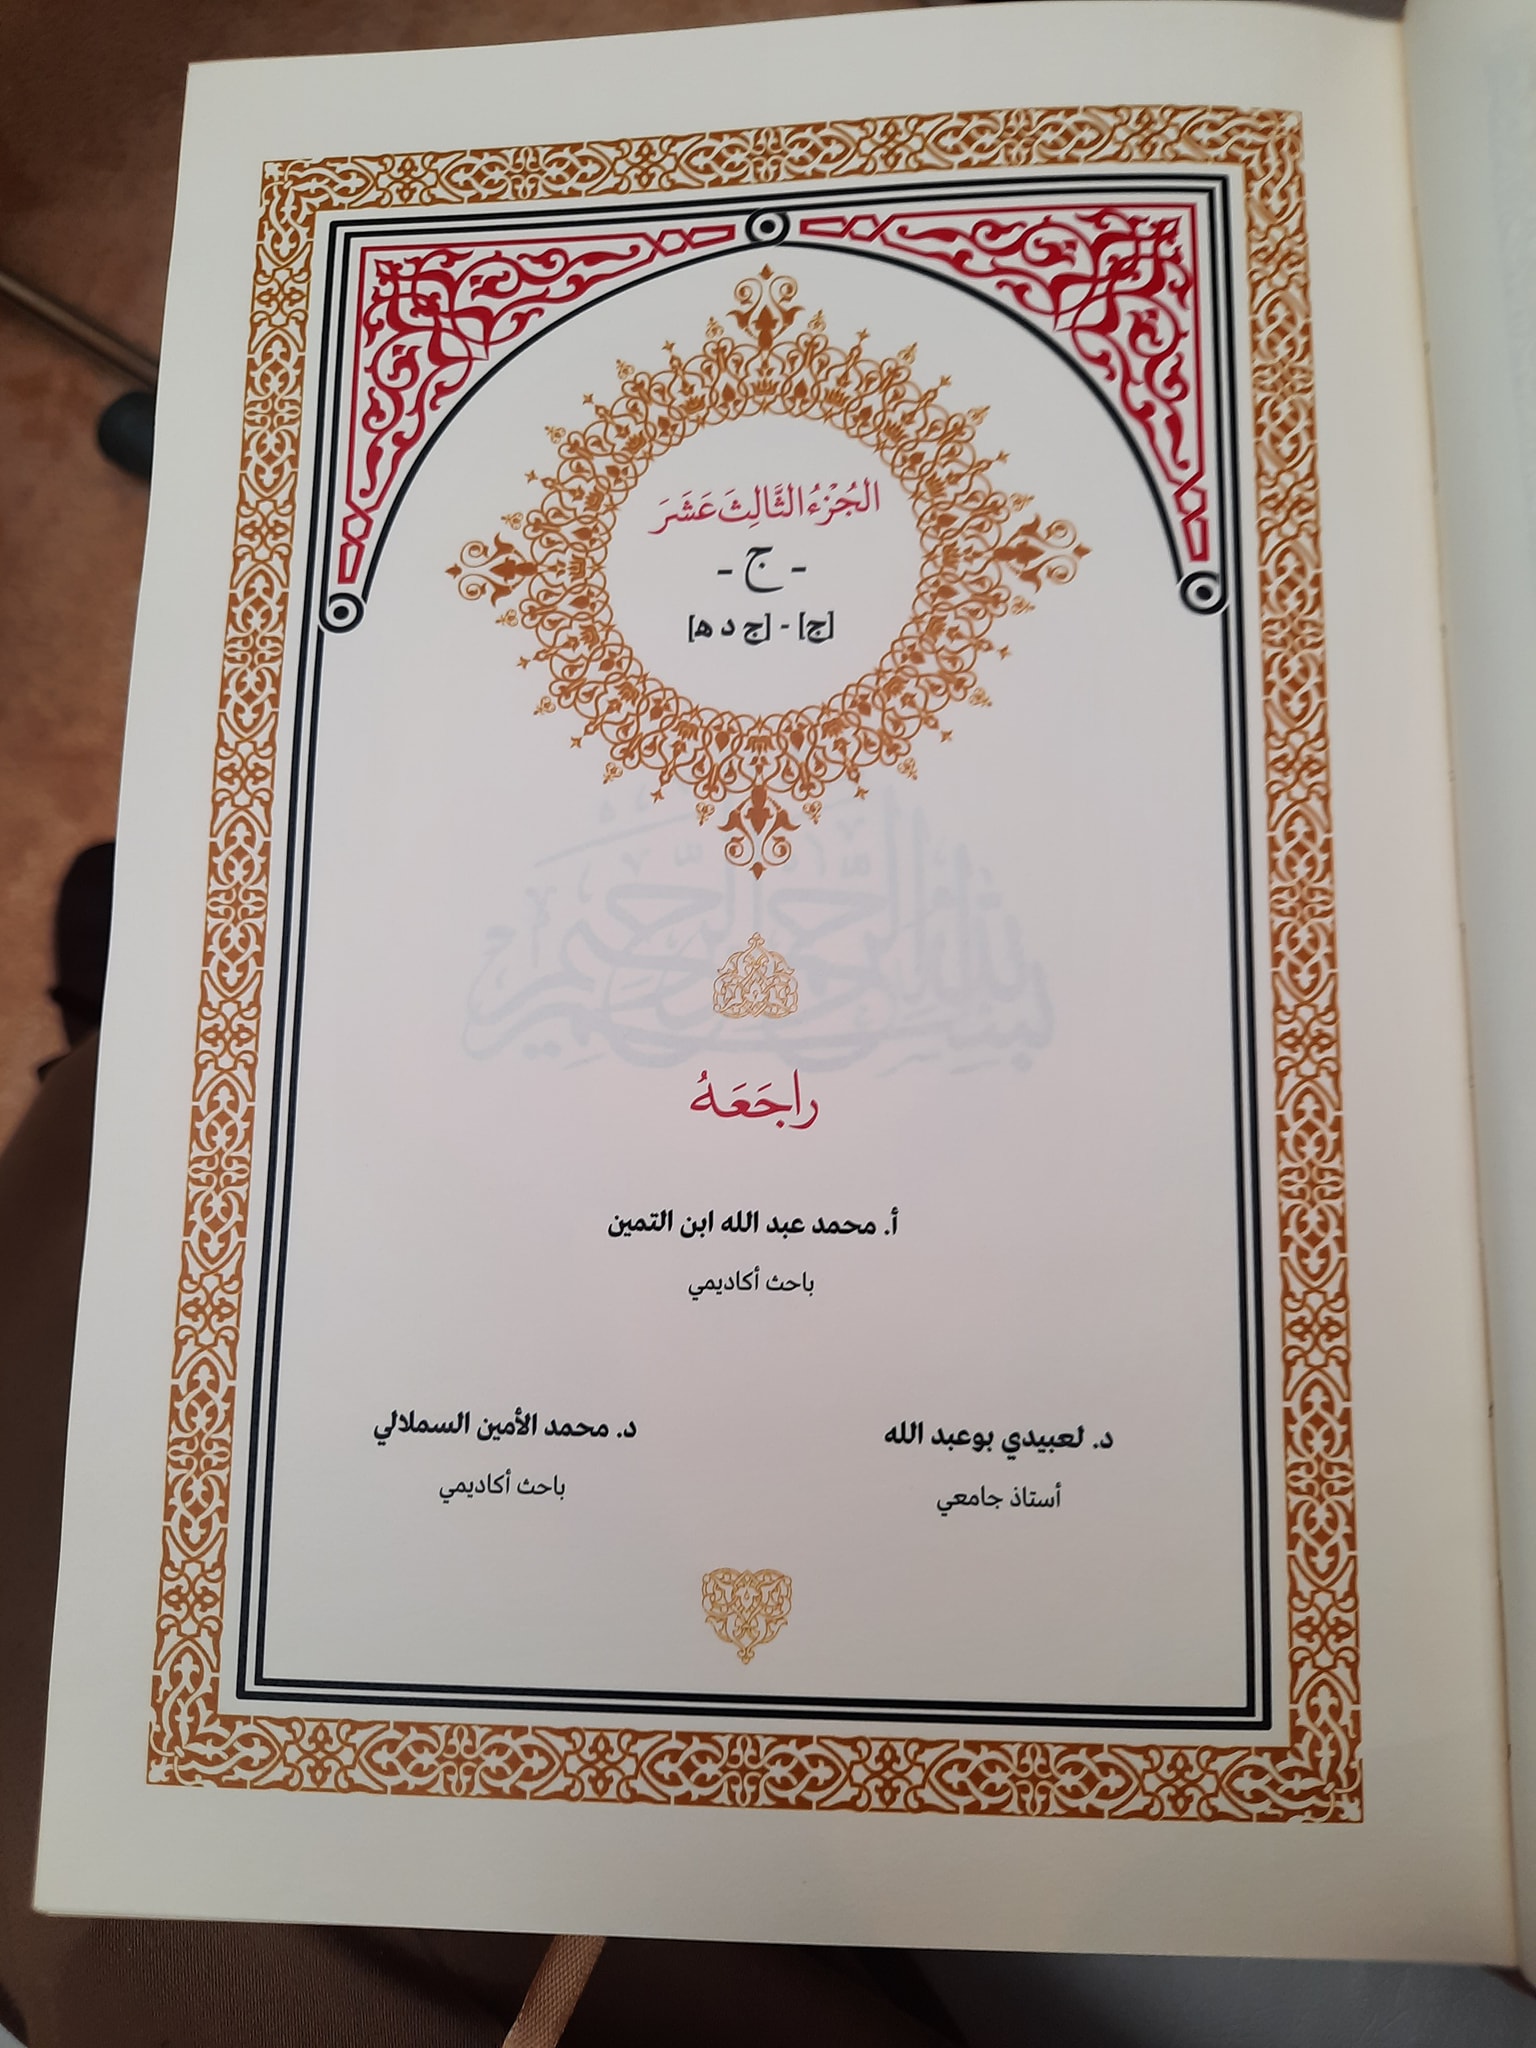 الجُزْءُ الثَّالِثَ عَشَرَ
- ج -
[ج] - [ج د ه]
بسم الله الرحمن الرحيم
راجَعَهُ
أ. محمد عبد الله ابن التمين
باحث أكاديمي
د. لعبيدي بوعبد الله
أستاذ جامعي
د. محمد الأمين السملالي
باحث أكاديمي